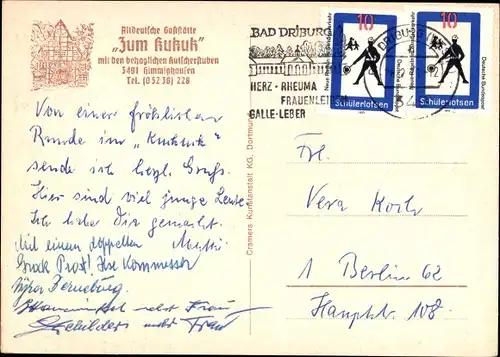 Altdeutsche Gaststätte
„Zum Kukuk"
mit den behaglichen Kutscherstuben
3491 Himmighausen
Tel. (05238) 228
BAD DRIBURG
HERZ · RHEUMA
FRAUENLEIDEN
GALLE · LEBER
DRIBURG
10
10
Schülerlotsen
Schülerlotsen
Deutsche Bundespost
Deutsche Bundespost
Cramers Kunstanstalt KG, Dortmund
Von einer fröhlichen
Runde im „Kuckuck"
sende ich herzl. Grüße.
Hier sind viel junge Leute
Ich habe Dir gemacht.
Mutti
Mit einem doppelten
Grock Prost! Ilse Kommesser
nebst Frau
Schilders nebst Frau
Frl.
Vera Koch
1 Berlin 62
Hauptstr. 108.